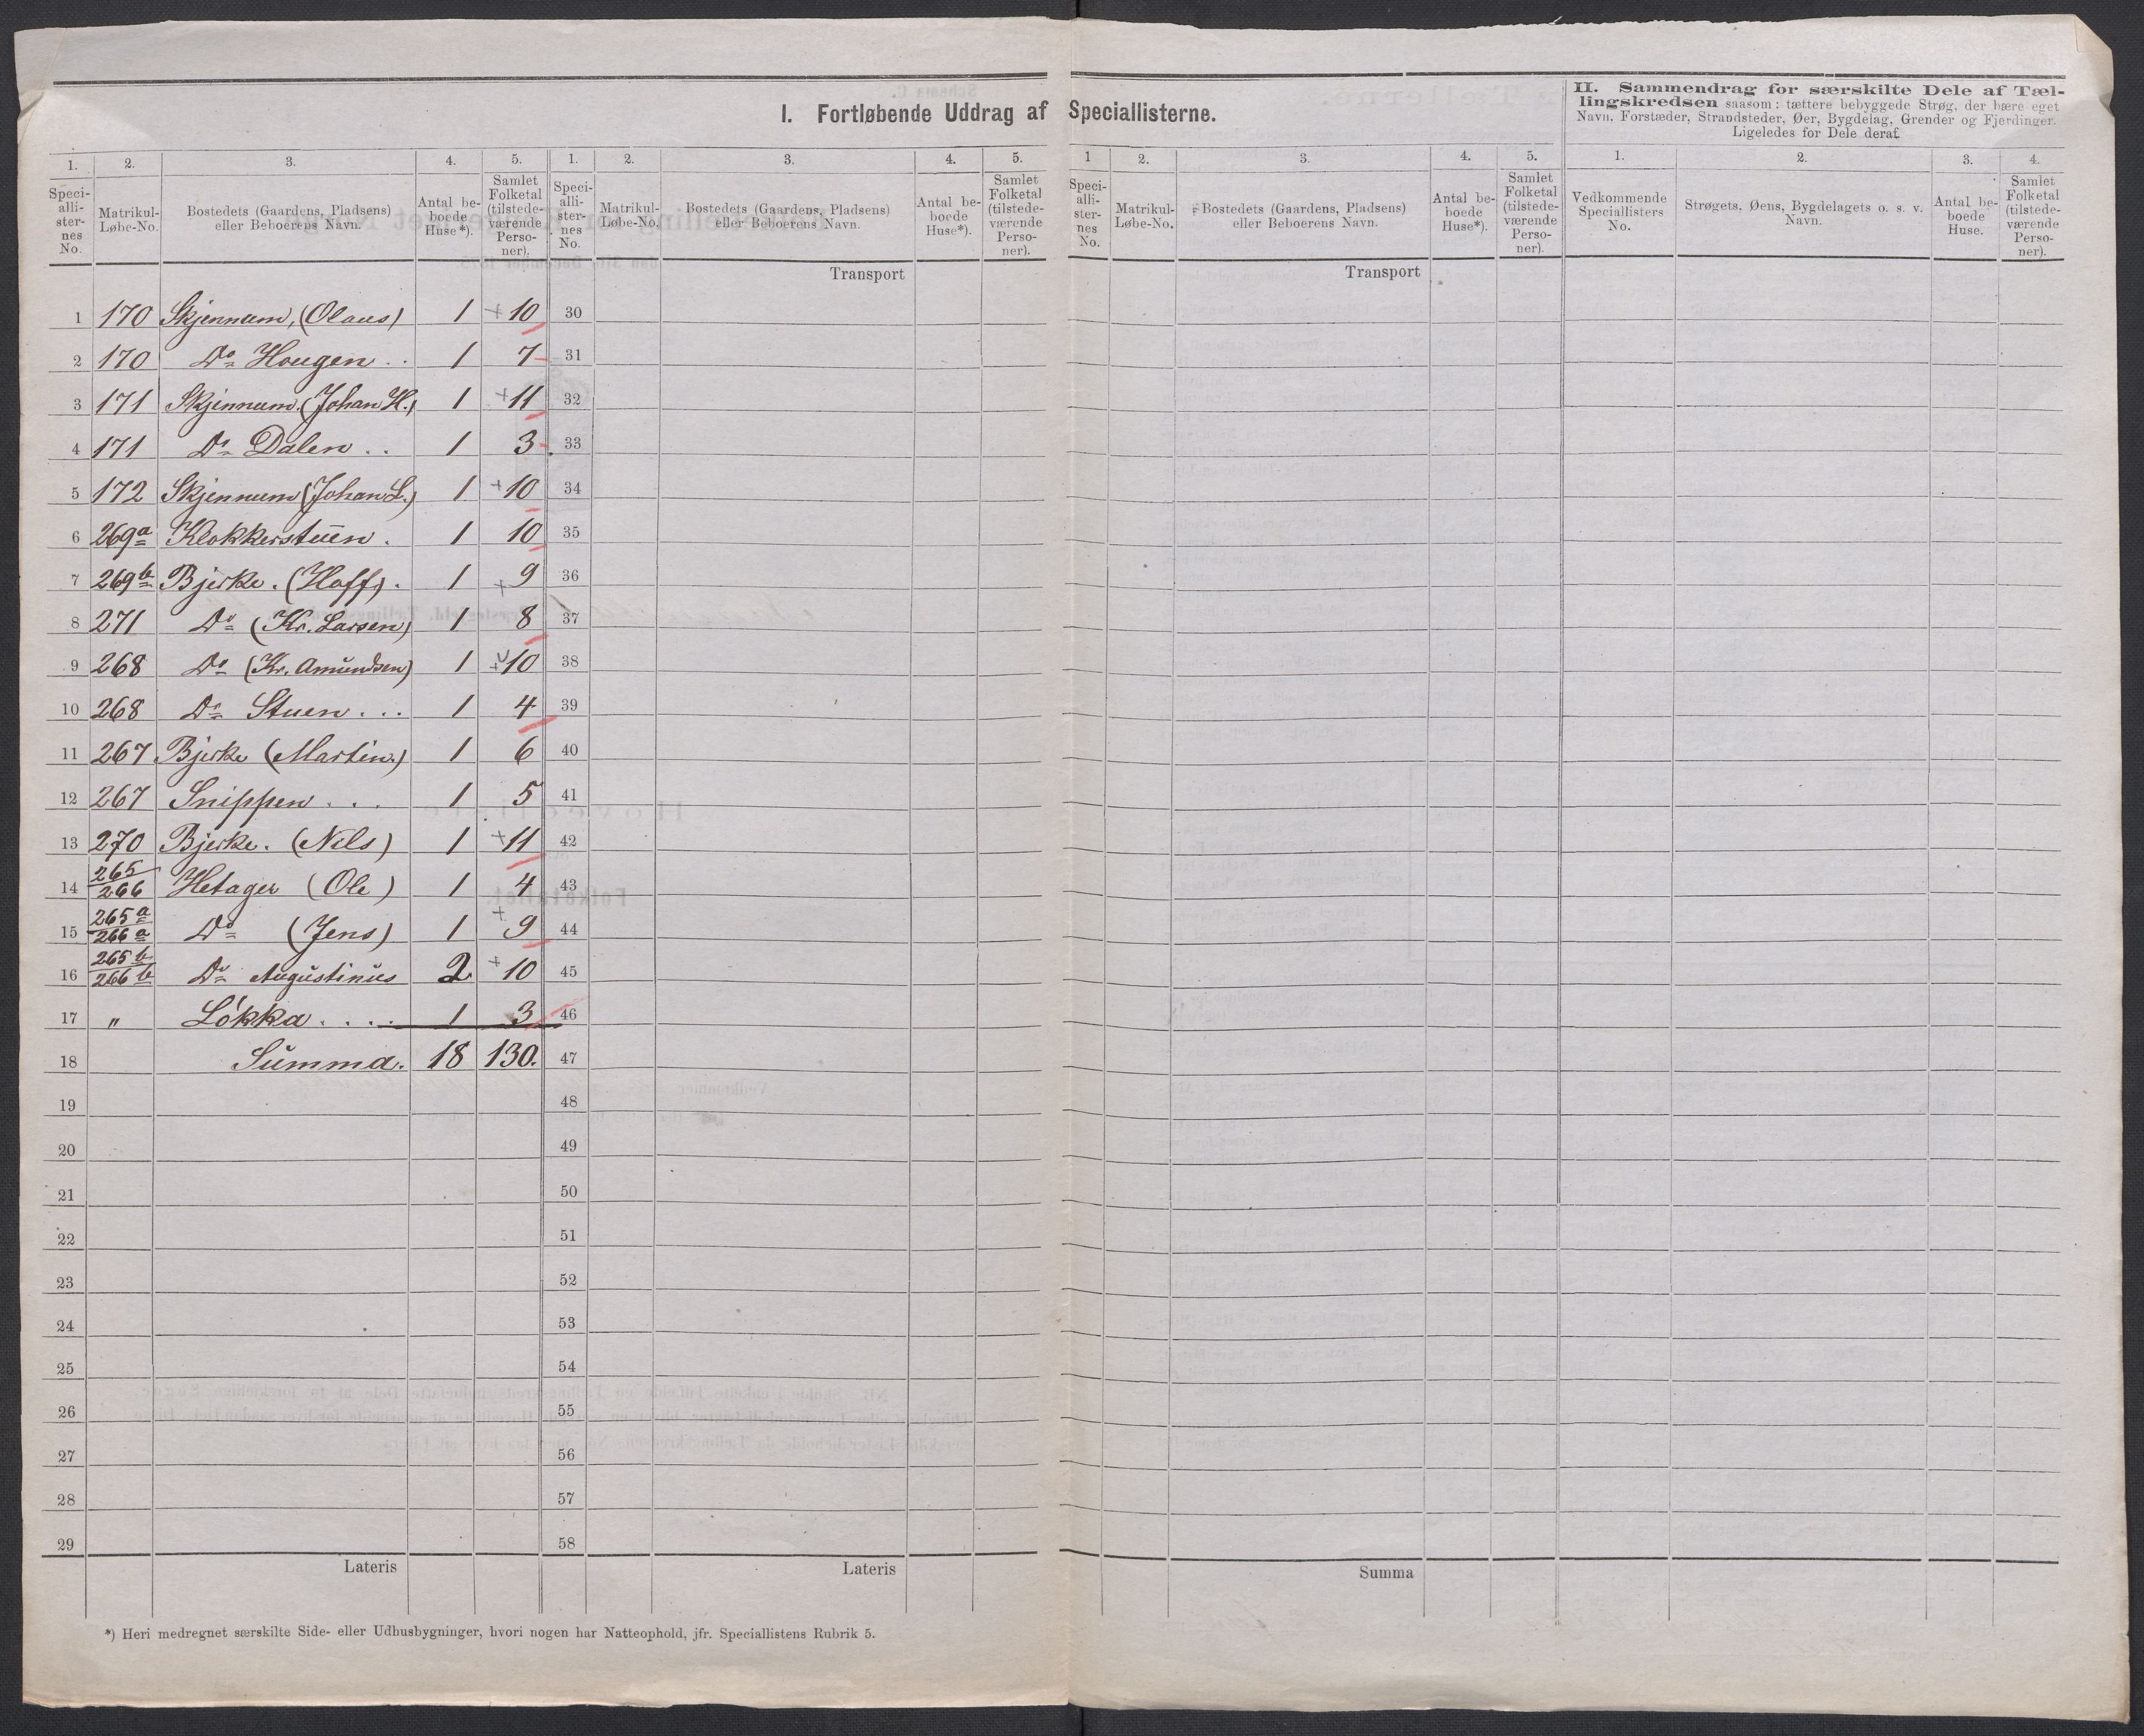 I. Fortløbende Uddrag af Speciallisterne.
II. Sammendrag for særskilte Dele af Tæl-
lingskredsen saasom: tættere bebyggede Strøg, der bære eget
Navn, Forstæder, Strandsteder, Øer, Bygdelag, Grender og Fjerdinger.
Ligeledes for Dele deraf.
1. 2. 3. 4. 5. 1. 2. 3. 4. 5. 1 2. 3. 4. 5. 1. 2. 3. 4.
Speci-alli-ster-nes No. Matrikul-Løbe-No. Bostedets (Gaardens, Pladsens) eller Beboerens Navn. Antal be-boede Huse*). Samlet Folketal (tilstede-værende Perso-ner).
Speci-alli-ster-nes No. Matrikul-Løbe-No. Bostedets (Gaardens, Pladsens) eller Beboerens Navn. Antal be-boede Huse*). Samlet Folketal (tilstede-værende Perso-ner).
Speci-alli-ster-nes No. Matrikul-Løbe-No. Bostedets (Gaardens, Pladsens) eller Beboerens Navn. Antal be-boede Huse*). Samlet Folketal (tilstede-værende Perso-ner).
Vedkommende Speciallisters No. Strøgets, Øens, Bygdelagets o. s. v. Navn. Antal be-boede Huse. Samlet Folketal (tilstede-værende Perso-ner).
Transport Transport
1 170 Skjennum, (Olaus) 1 + 10 30
2 170 Do Hougen . . 1 7 31
3 171 Skjennum. (Johan H.) 1 + 11 32
4 171 Do Dalen . . 1 3 33
5 172 Skjennum (Johan L.) 1 + 10 34
6 269a Klokkerstuen . 1 10 35
7 269b Bjerke . (Hoff) . 1 + 9 36
8 271 Do (Kr. Larsen) 1 8 37
9 268 Do (Kr. Amundsen) 1 + 10 38
10 268 Do Stuen . . . 1 4 39
11 267 Bjerke (Martin.) 1 6 40
12 267 Snippen . . . 1 5 41
13 270 Bjerke. (Nils) 1 + 11 42
14 265/266 Hetager (Ole) 1 4 43
15 265a/266a Do (Jens) 1 + 9 44
16 265b/266b Do Augustinus 2 + 10 45
17 " Løkka . . . . 1 3 46
18 Summa. 18 130. 47
19 48
20 49
21 50
22 51
23 52
24 53
25 54
26 55
27 56
28 57
29 58
Lateris Lateris Summa
*) Heri medregnet særskilte Side- eller Udhusbygninger, hvori nogen har Natteophold, jfr. Speciallistens Rubrik 5.